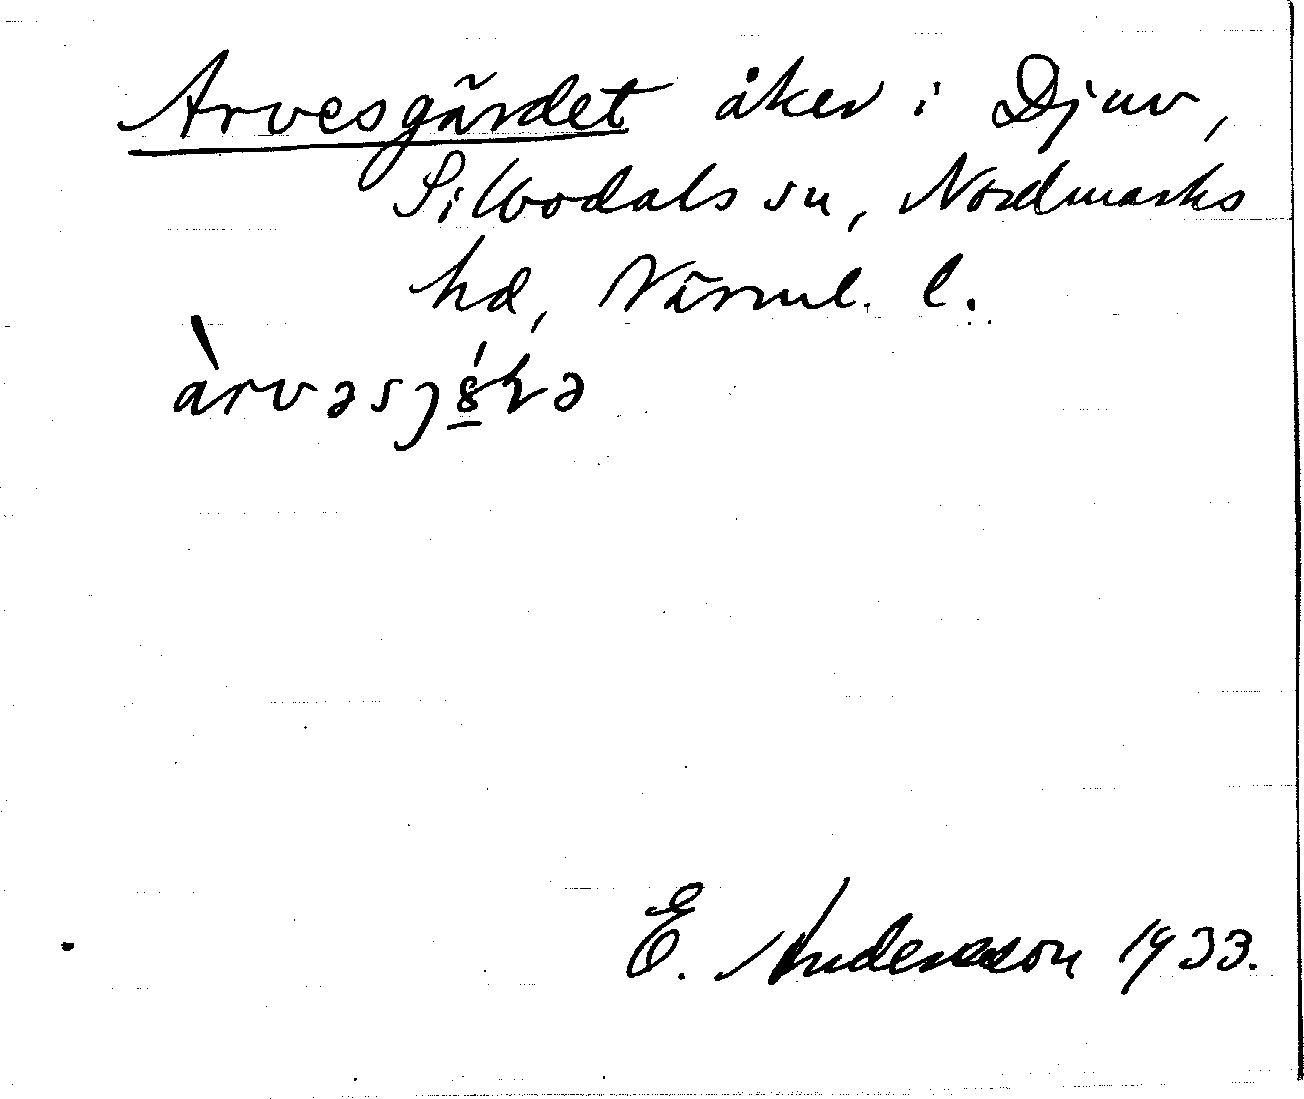 Arvesgärdet åker i Djuv,
Silbodals sn, Nordmarks
hd, Värml. l.
àrvəsȷ
E. Andersson 1933.